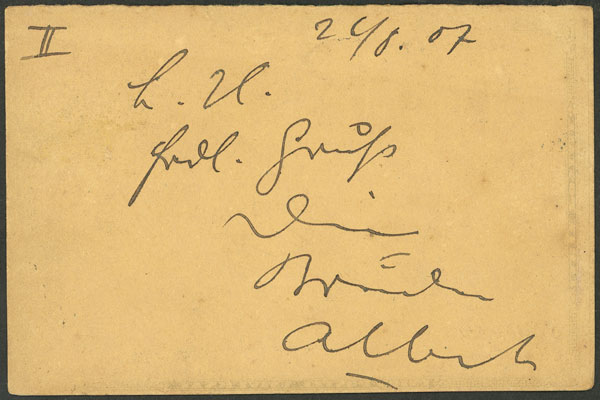 II
24/8. 07
L. H.
frdl. Gruß
Dein
Bruder
Albert